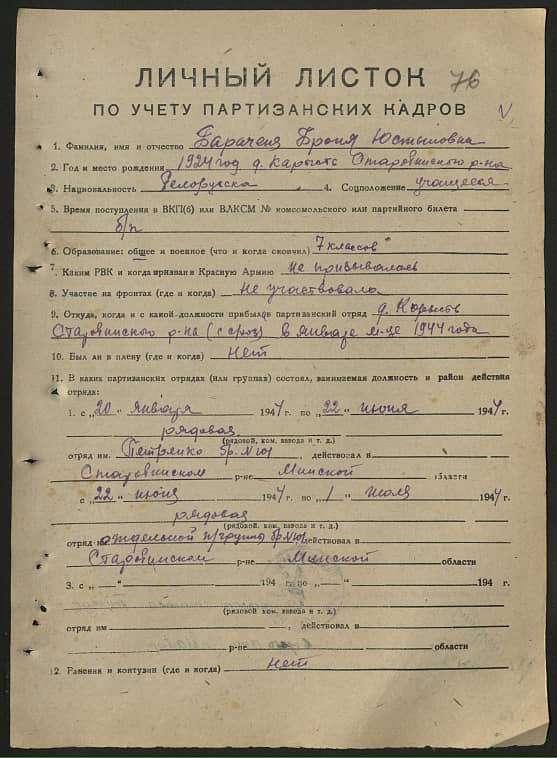 ЛИЧНЫЙ ЛИСТОК 76
ПО УЧЕТУ ПАРТИЗАНСКИХ КАДРОВ
1. Фамилия, имя и отчество Бараченя Броня Юстыновна
2. Год и место рождения 1924 год д. Карысть Старобинского р-на
3. Национальность Белоруска 4. Соцположение учащееся
5. Время поступления в ВКП(б) или ВЛКСМ № комсомольского или партийного билета
б/п
6. Образование: общее и военное (что и когда окончил) 7 классов
7. Каким РВК и когда призван в Красную Армию не призывалась
8. Участие на фронтах (где и когда) не участвовала
9. Откуда, когда и с какой должности прибыл в партизанский отряд д.
Старобинского р-на в январе м-це 1944 года
10. Был ли в плену (где и когда) Нет
11. В каких партизанских отрядах (или группах) состоял, занимаемая должность и район действия
отряда:
1. с „20" января 1944 по „22" июня 1944 г.
рядовая
(рядовой, ком. взвода и т. д.)
отряд им. бр. N 101, действовал в
Старобинском р-не Минской области
с „22" июня 1944 по „1" июля 1944 г.
рядовая
(рядовой, ком. взвода и т. д.)
отряд отдельной п/группы бр. N 101 действовал в
Старобинском р-не Минской области
3. с „ " 194 г. по „ " 194 г.
(рядовой, ком. взвода и т. д.)
отряд им , действовал в
р-не области
12. Ранения и контузии (где и когда) нет